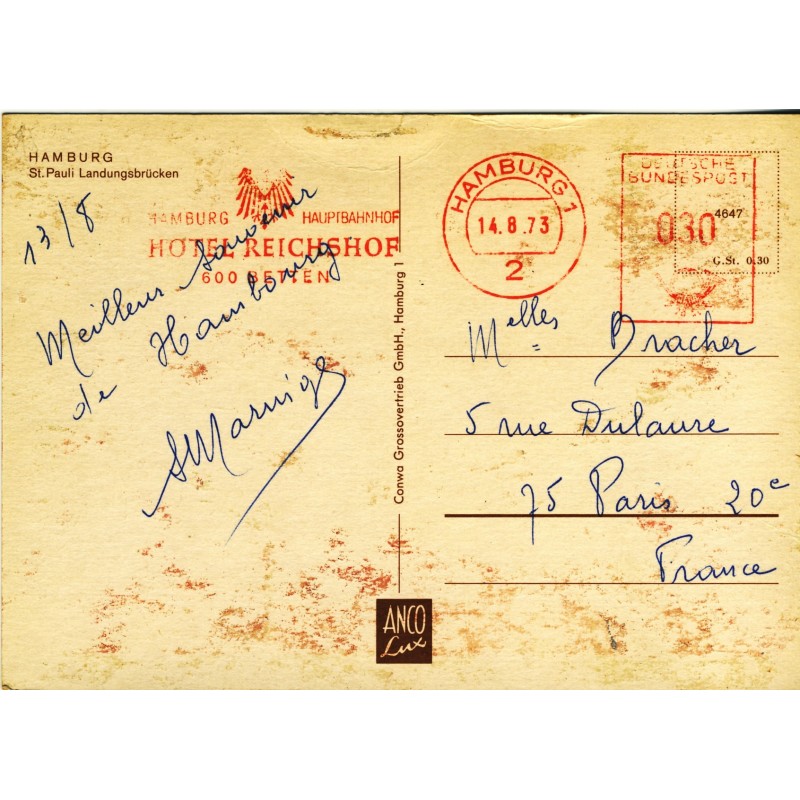 HAMBURG
St. Pauli Landungsbrücken
13/8
HAMBURG HAUPTBAHNHOF
HOTEL REICHSHOF
600 BETTEN
Meilleur Souvenir
de Hambourg
Conwa Grossovertrieb GmbH., Hamburg 1
ANCO
Lux
HAMBURG 1
14.8.73
2
DEUTSCHE
BUNDESPOST
4647
030
G.St. 0.30
Melles Bracher
5 rue Dulaure
75 Paris 20e
France